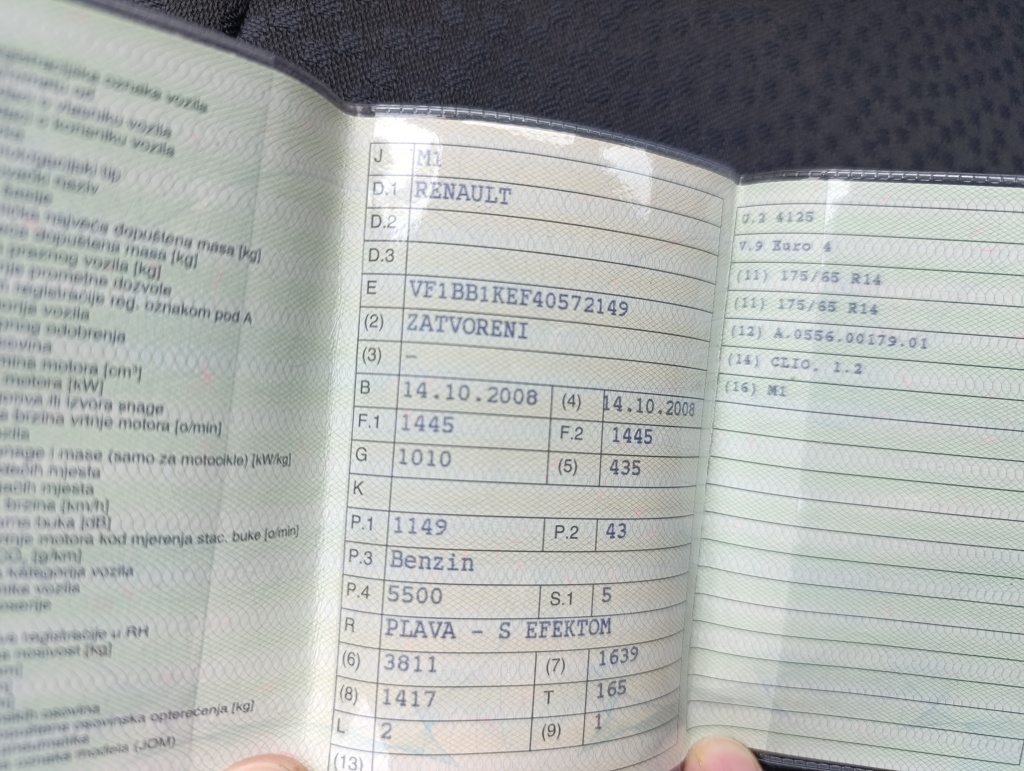 registracijska oznaka vozila
vlasniku vozila
korisniku vozila
tip
naziv
najveća dopuštena masa [kg]
dopuštena masa [kg]
praznog vozila [kg]
prometne dozvole
registracije reg. oznakom pod A
vozila
odobrenja
motora [cm³]
motora [kW]
ili izvora snage
brzina vrtnje motora [o/min]
snage i mase (samo za motocikle) [kW/kg]
mjesta
mjesta
brzina [km/h]
buka [dB]
motora kod mjerenja stac. buke [o/min]
[g/km]
kategorija vozila
vozila
registracije u RH
nosivost [kg]
osovina
osovinska opterećenja [kg]
pneumatika
oznaka modela (JOM)
J M1
D.1 RENAULT
D.2
D.3
E VF1BB1KEF40572149
(2) ZATVORENI
(3) –
B 14.10.2008 (4) 14.10.2008
F.1 1445 F.2 1445
G 1010 (5) 435
K
P.1 1149 P.2 43
P.3 Benzin
P.4 5500 S.1 5
R PLAVA - S EFEKTOM
(6) 3811 (7) 1639
(8) 1417 T 165
L 2 (9) 1
(13)
U.2 4125
V.9 Euro 4
(11) 175/65 R14
(11) 175/65 R14
(12) A.0556.00179.01
(14) CLIO, 1.2
(16) M1